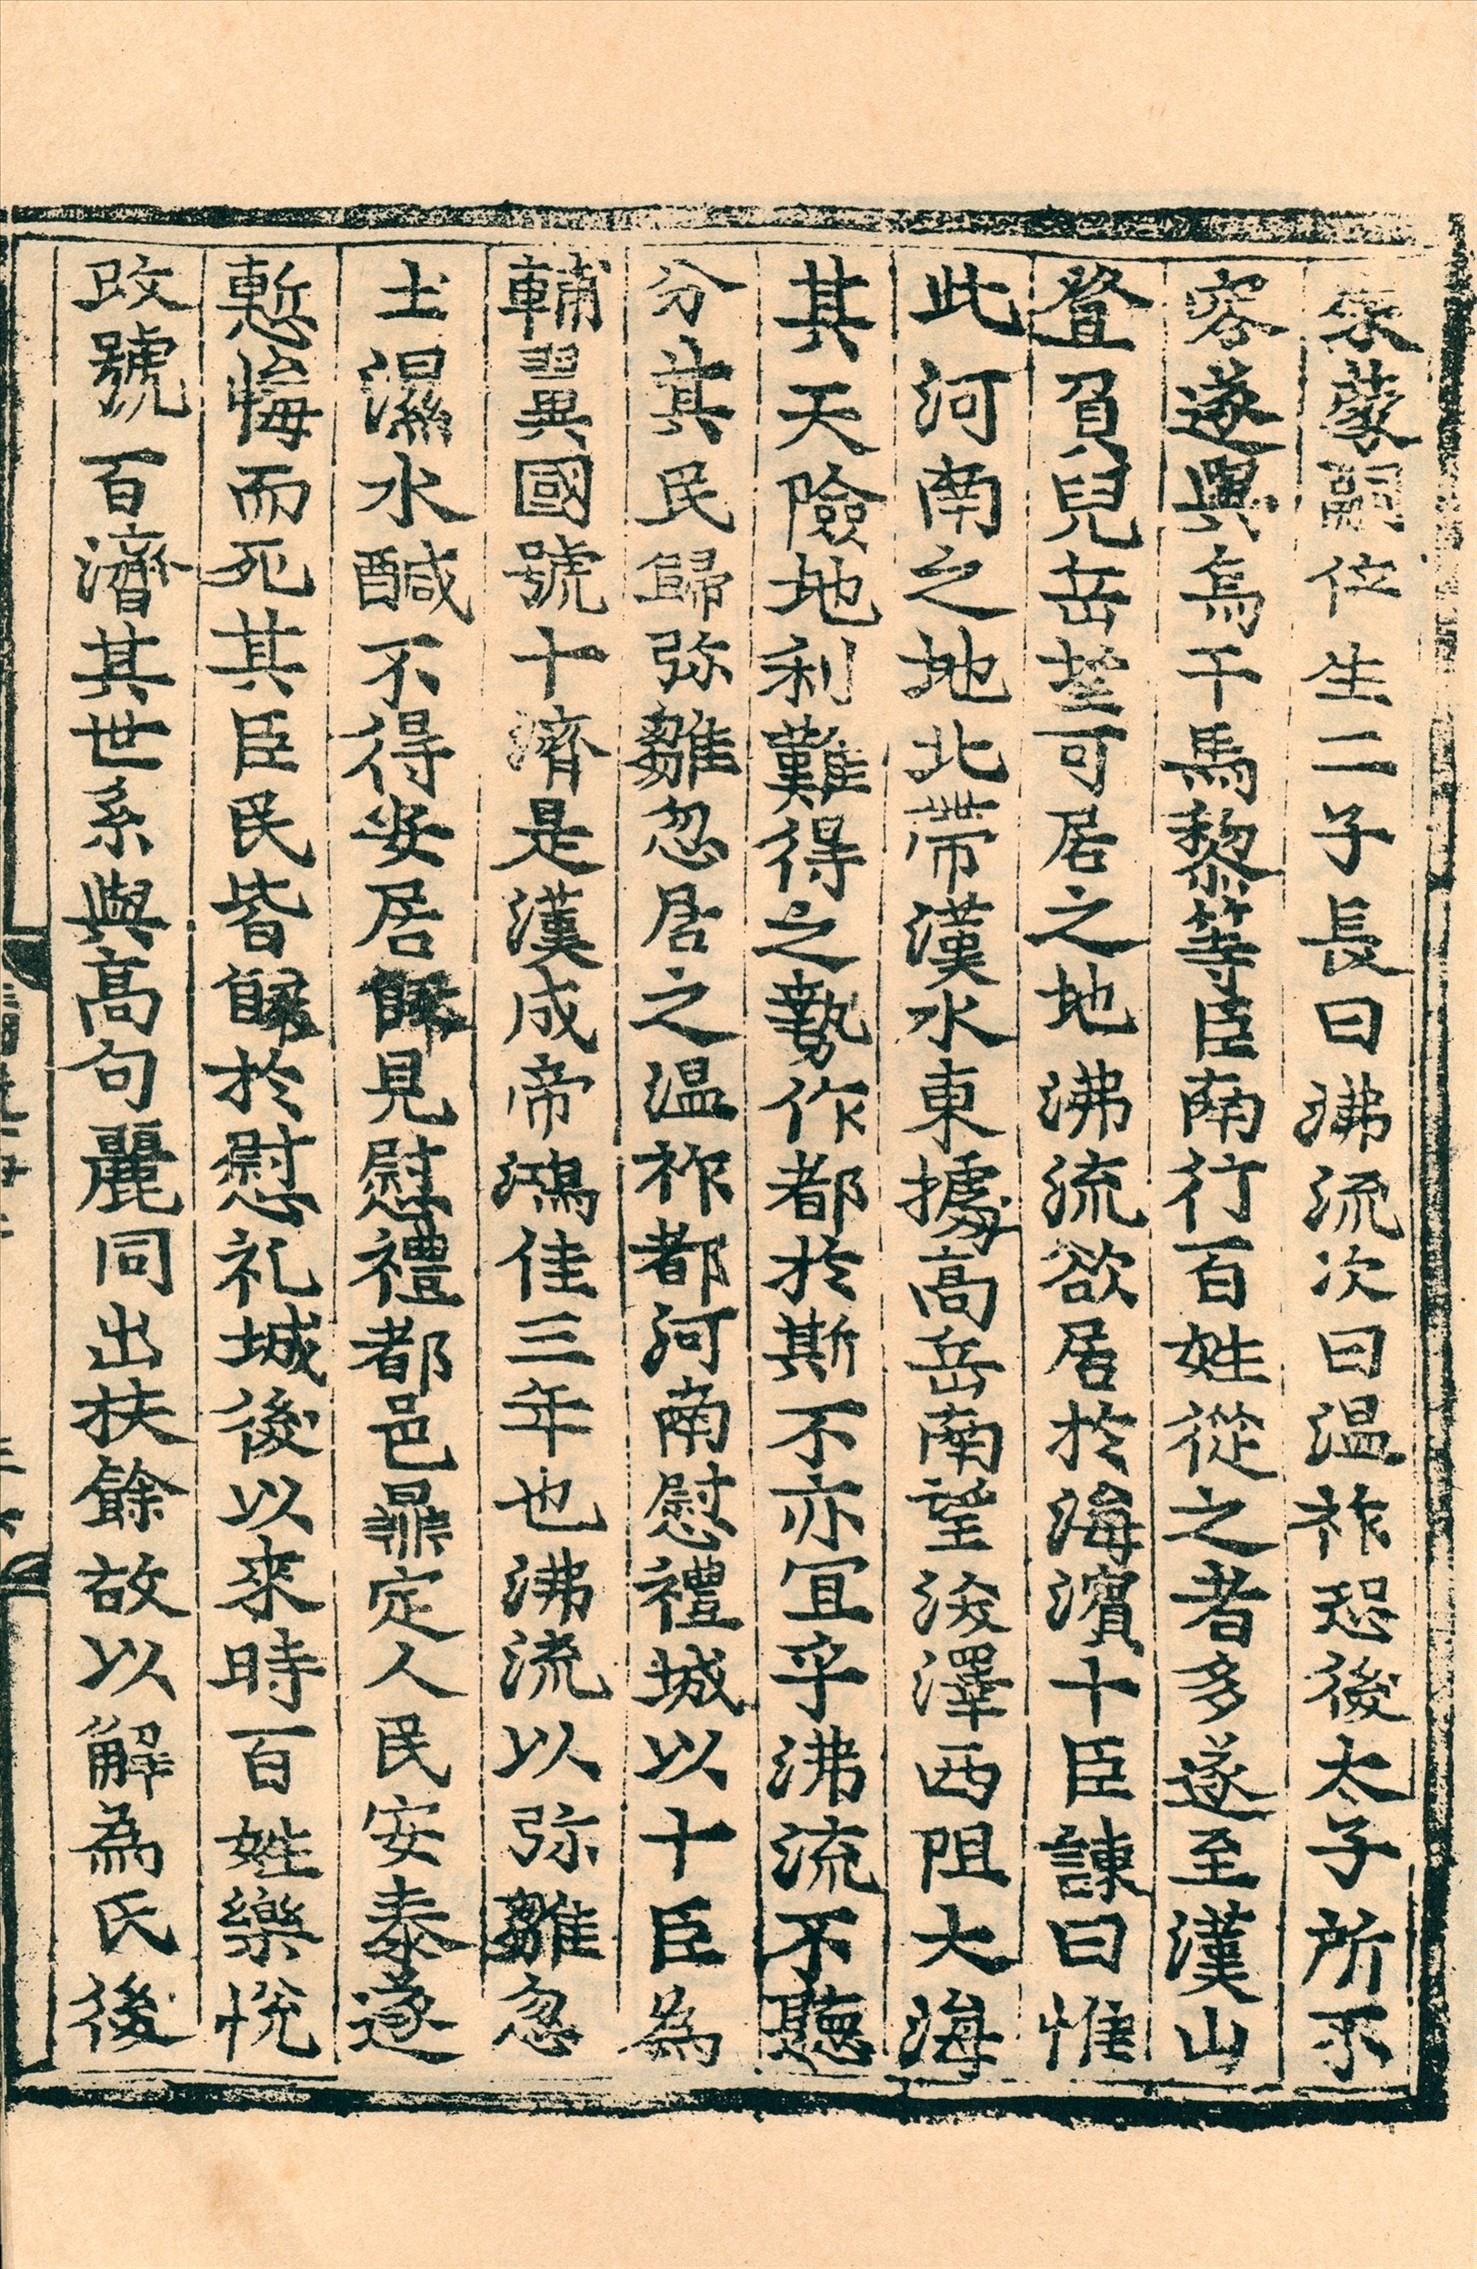 朱蒙嗣位生二子長曰沸流次曰温祚恐後太子所不
容遂與烏干馬黎等臣南行百姓從之者多遂至漢山
登負兒岳望可居之地沸流欲居於海濱十臣諫曰惟
此河南之地北帶漢水東據高岳南望沃澤西阻大海
其天險地利難得之勢作都於斯不亦宜乎沸流不聽
分其民歸弥雛忽居之温祚都河南慰禮城以十臣為
輔翼國號十濟是漢成帝鴻佳三年也沸流以弥雛忽
土濕水鹹不得安居歸見慰禮都邑鼎定人民安泰遂
慙悔而死其臣民皆歸於慰礼城後以來時百姓樂悅
改號百濟其世系與高句麗同出扶餘故以解為氏後